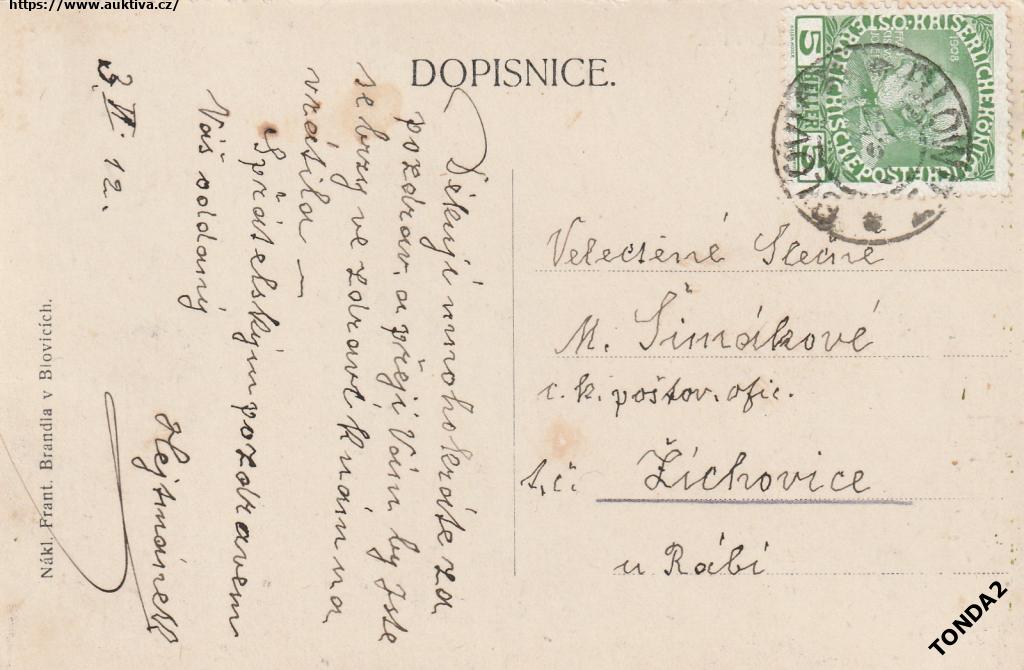 https://www.auktiva.cz/
DOPISNICE.
Děkuji mnohokráte za
pozdrav. a přeji Vám by jste
se brzy ve zdraví k nám na
vrátila —
S přátelským pozdravem
Váš oddaný
Hejtmánek
3. VI. 12.
Nákl. Frant. Brandla v Blovicích.
1908
5 HELLER 5
KAISERLICHE KÖNIGL
ÖSTERREICHISCHE POST
Velectěné Slečně
M. Šimákové
c. k. poštov. ofic.
t. č. Žichovice
u Rábí
TONDA2